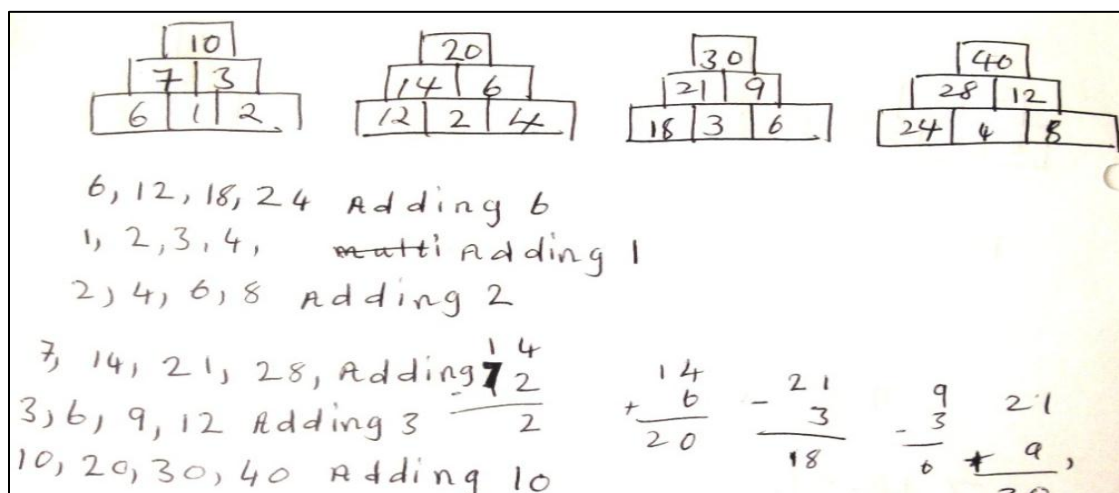 10 20 30 40
7 3 14 6 21 9 28 12
6 1 2 12 2 4 18 3 6 24 4 8
6, 12, 18, 24 Adding 6
1, 2, 3, 4, multi Adding 1
2, 4, 6, 8 Adding 2
7, 14, 21, 28, Adding 7
3, 6, 9, 12 Adding 3
10, 20, 30, 40 Adding 10
14
- 12
2
14
+ 6
20
- 21
3
18
9
- 3
6
21
+ 9,